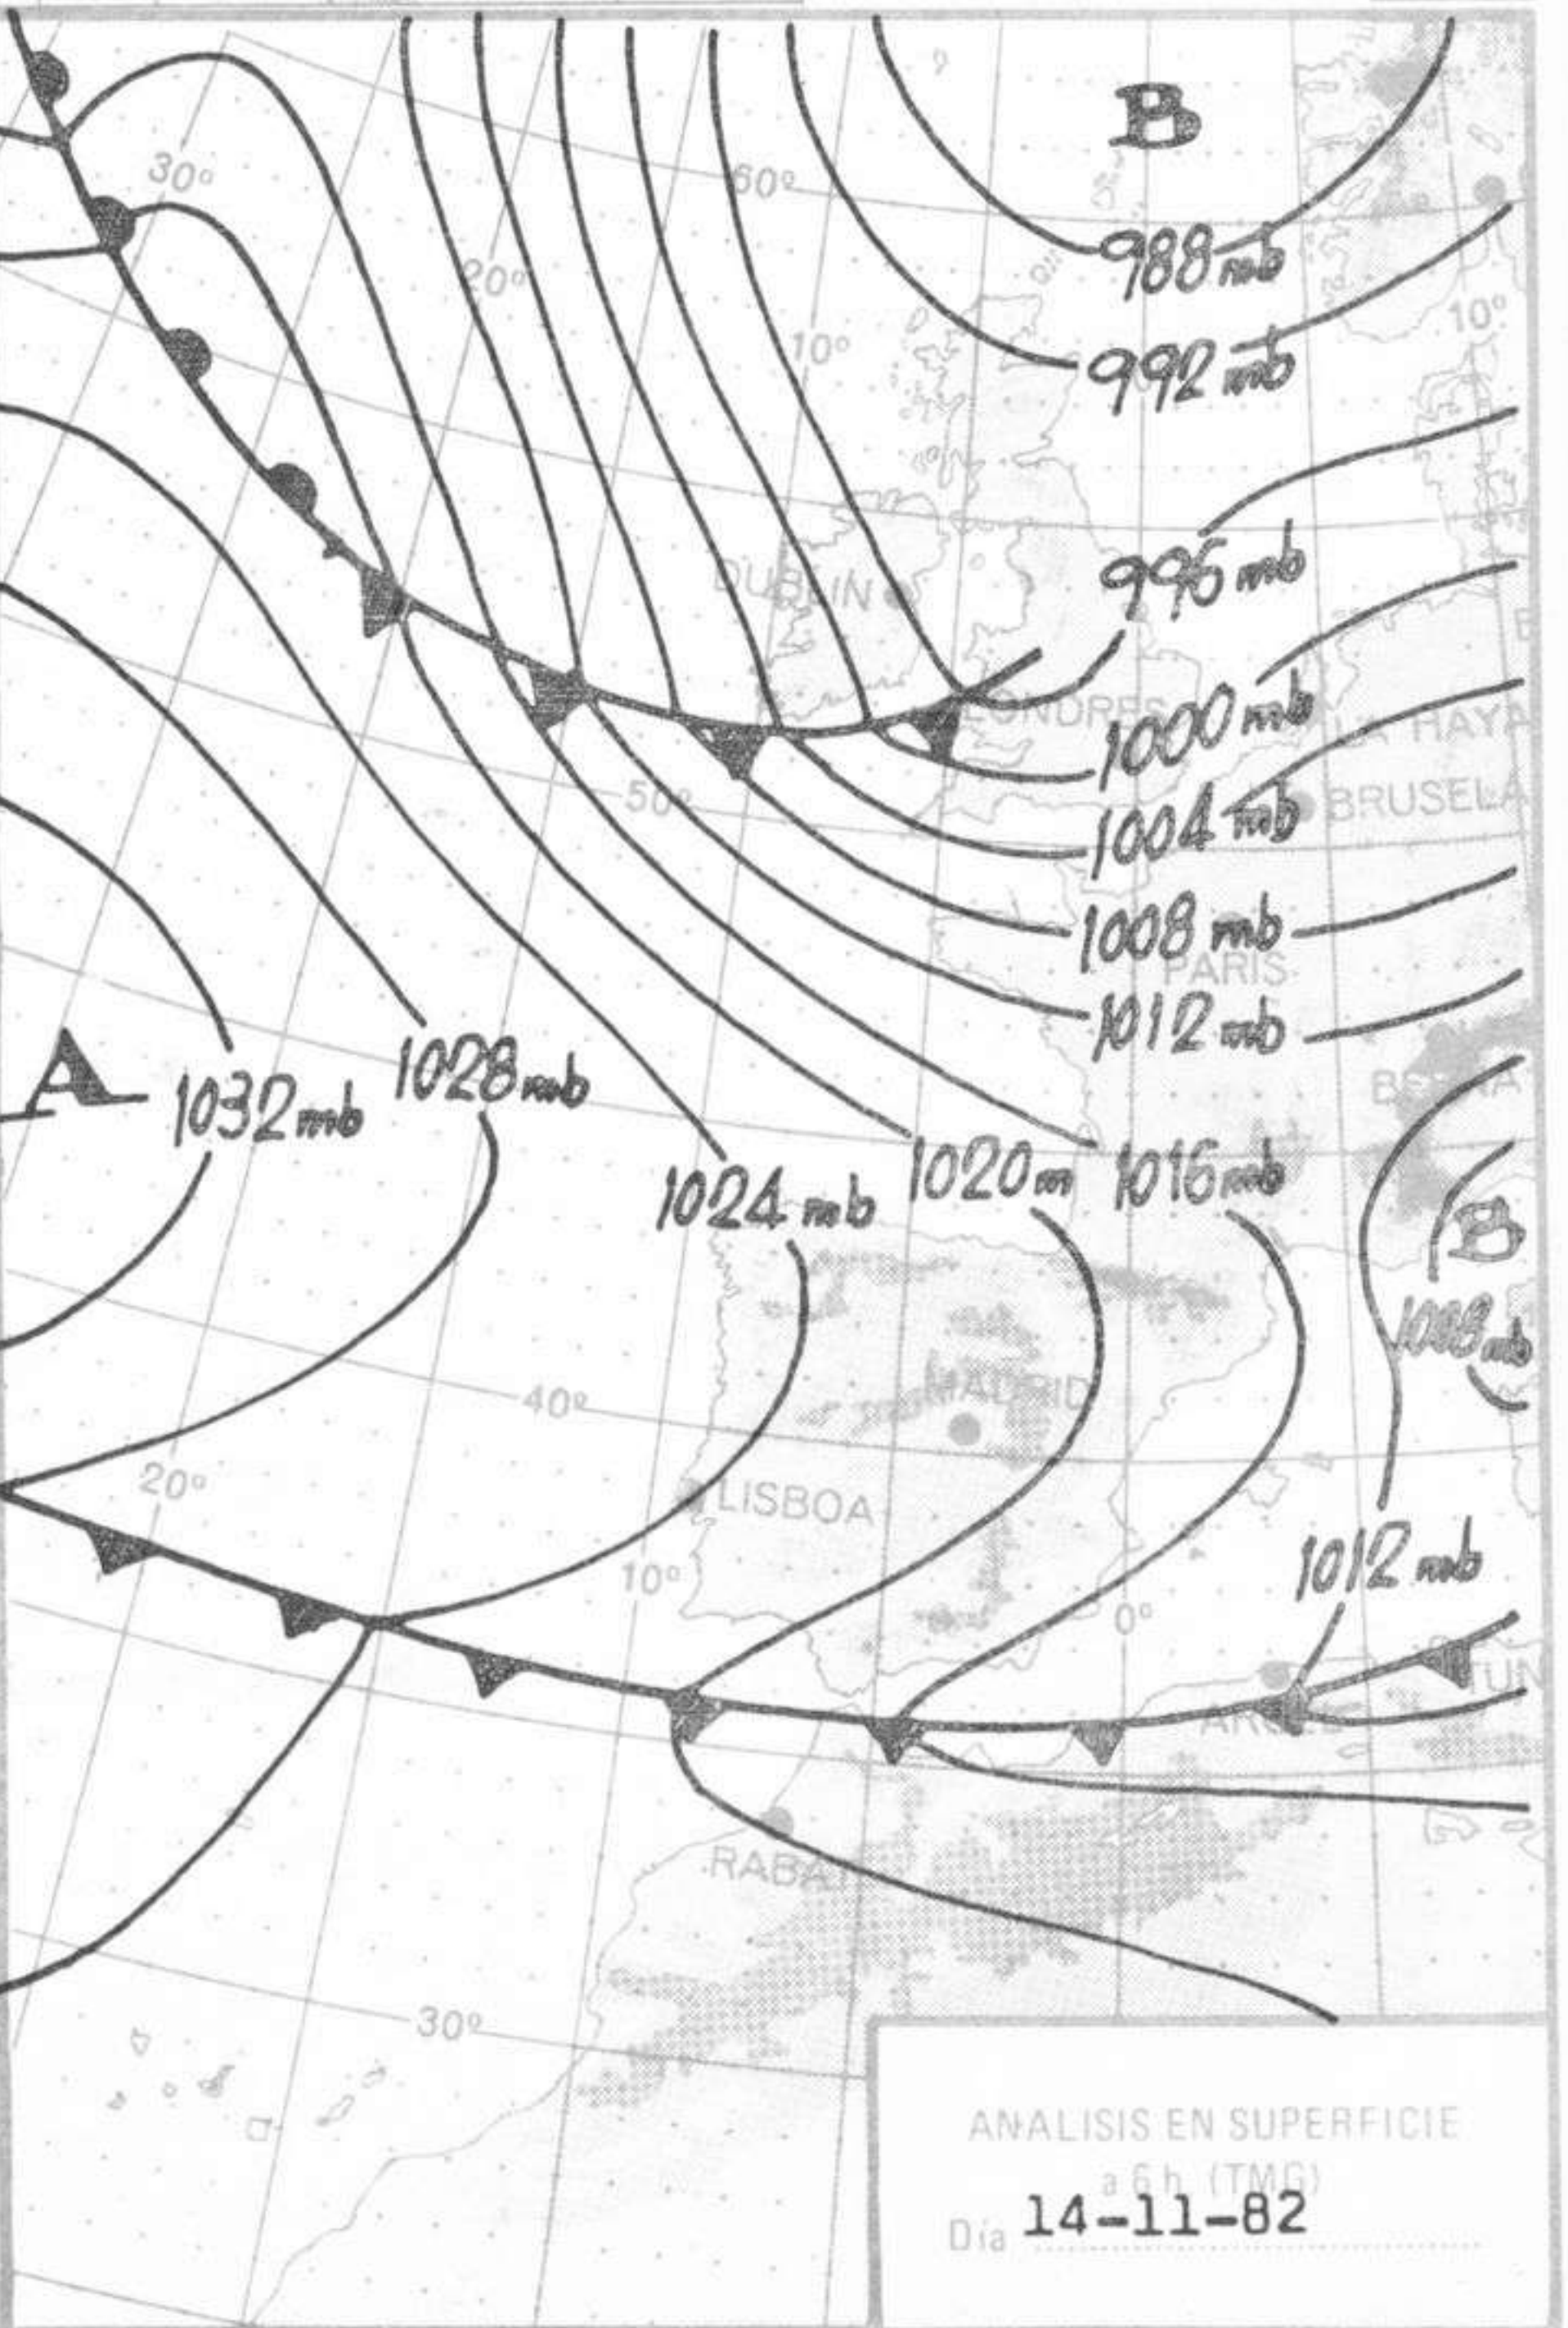 B
30º
60º
20º
988 mb
10º
10º
992 mb
DUBLIN
996 mb
LONDRES
1000 mb
LA HAYA
50º
1004 mb
BRUSELA
1008 mb
PARIS
1012 mb
A
1032 mb
1028 mb
BERNA
1024 mb
1020 m
1016 mb
B
1008 mb
MADRID
40º
20º
LISBOA
10º
1012 mb
0º
TUN
ARGEL
RABA
30º
ANALISIS EN SUPERFICIE
a 6 h (TMG)
Día 14-11-82